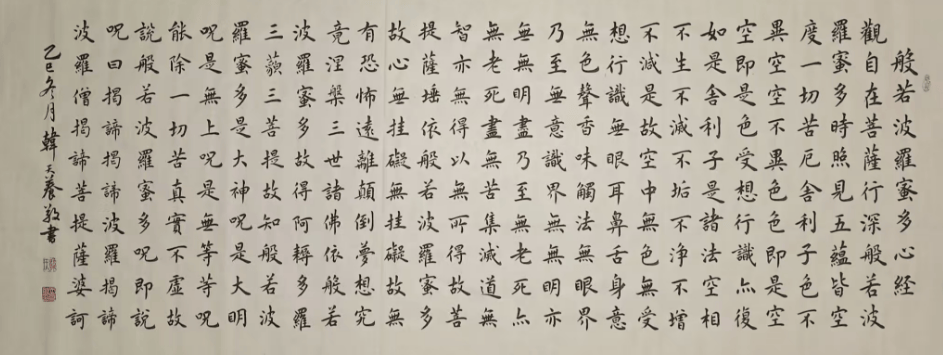 般若波羅蜜多心經
觀自在菩薩行深般若波
羅蜜多時照見五蘊皆空
度一切苦厄舍利子色不
異空空不異色色即是空
空即是色受想行識亦復
如是舍利子是諸法空相
不生不滅不垢不淨不增
不減是故空中無色無受
想行識無眼耳鼻舌身意
無色聲香味觸法無眼界
乃至無意識界無無明亦
無無明盡乃至無老死亦
無老死盡無苦集滅道無
智亦無得以無所得故菩
提薩埵依般若波羅蜜多
故心無挂礙無挂礙故無
有恐怖遠離顛倒夢想究
竟涅槃三世諸佛依般若
波羅蜜多故得阿耨多羅
三藐三菩提故知般若波
羅蜜多是大神呪是大明
呪是無上呪是無等等呪
能除一切苦真實不虛故
說般若波羅蜜多呪即說
呪曰揭諦揭諦波羅揭諦
波羅僧揭諦菩提薩婆訶
乙巳冬月韓天養敬書